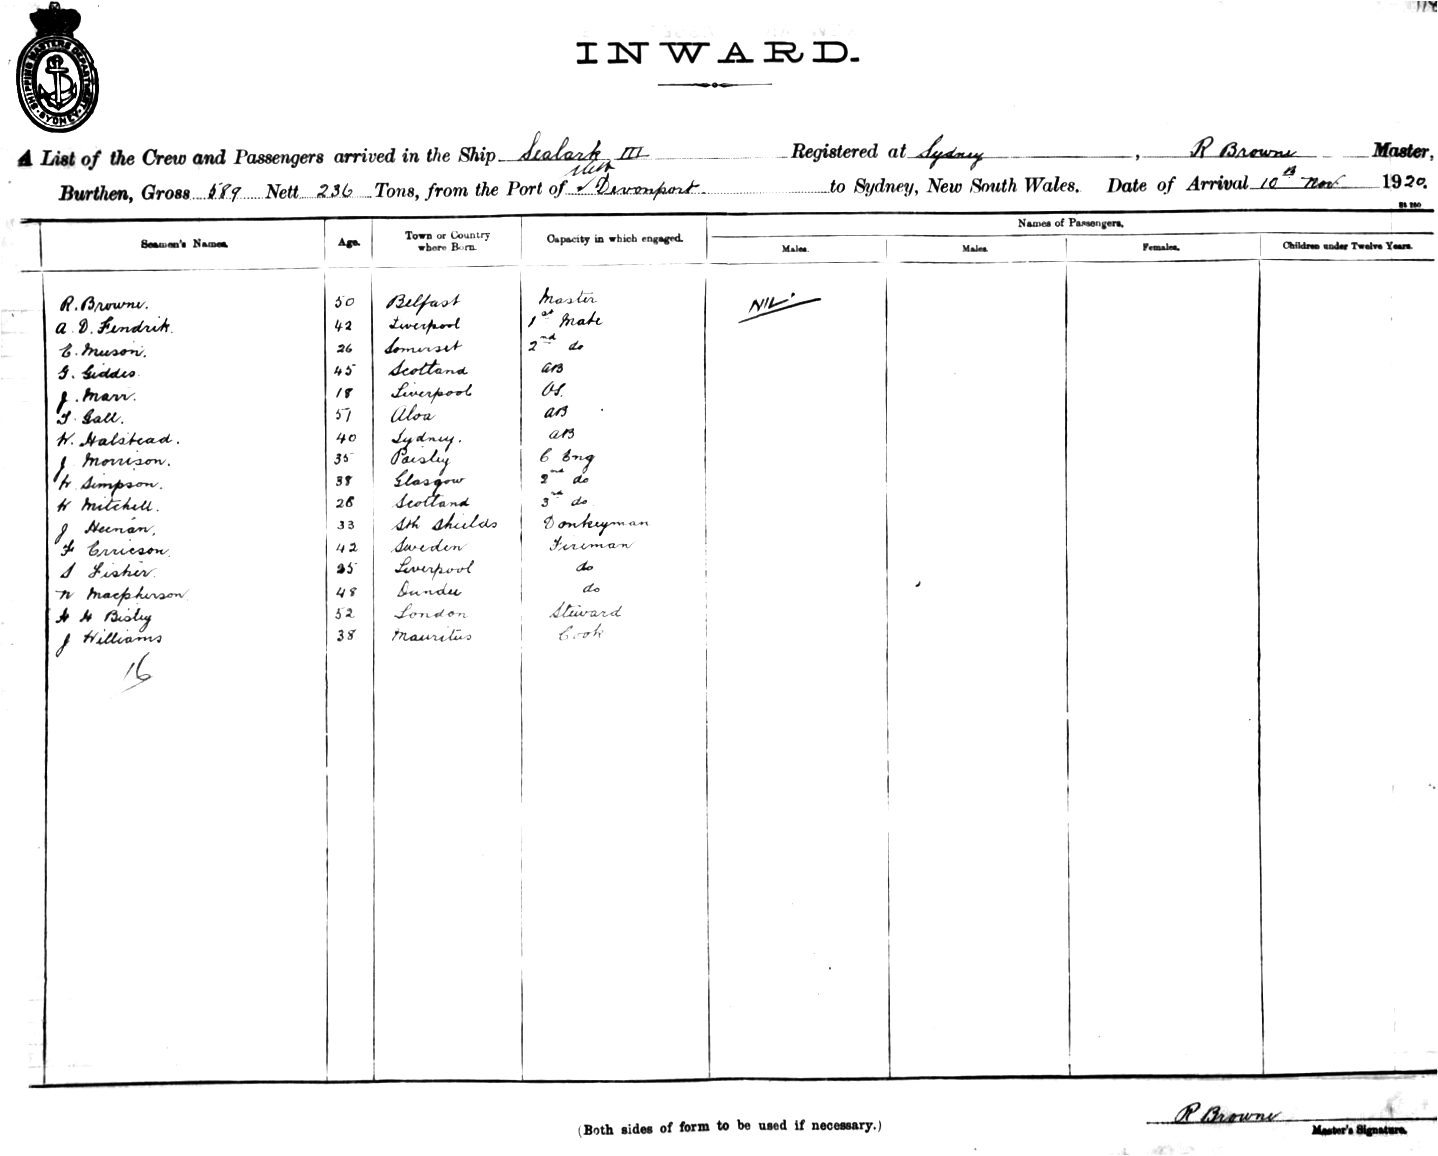 118
SHIPPING MASTERS DEPARTMENT
SYDNEY
INWARD.
A List of the Crew and Passengers arrived in the Ship Sealark III Registered at Sydney, R Browne Master,
Burthen, Gross 589 Nett 236 Tons, from the Port of Devonport to Sydney, New South Wales. Date of Arrival 10th Nov 1920.
Seamen's Names. Age. Town or Country where Born. Capacity in which engaged. Names of Passengers.
Males. Males. Females. Children under Twelve Years.
R. Browne. 50 Belfast Master NIL.
A. D. Fendrik. 42 Liverpool 1st Mate
E. Muson. 26 Somerset 2nd do
G. Giddes. 45 Scotland AB
J. Marr. 18 Liverpool OS.
T. Gall. 51 Aloa AB
W. Halstead. 40 Sydney. AB
J Morrison. 35 Paisley C Eng
W Simpson. 38 Glasgow 2nd do
W Mitchell. 28 Scotland 3rd do
J Heenan. 33 Sth Shields Donkeyman
F Erricson. 42 Sweden Fireman
S Fisher. 25 Liverpool do
N Macpherson 48 Dundee do
H H Bisley 52 London Steward
J Williams 38 Mauritus Cook
16
(Both sides of form to be used if necessary.)
R Browne
Master's Signature.